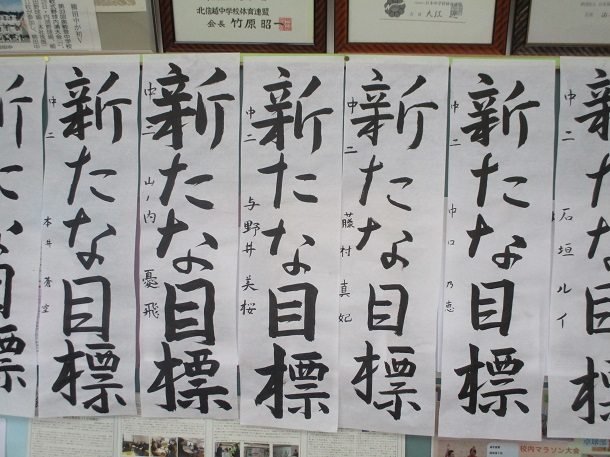 北信越中学校体育連盟
会長 竹原昭一
新たな目標
中二 石垣ルイ
新たな目標
中二 中口乃恵
新たな目標
中二 藤村真妃
新たな目標
中二 与野井美桜
新たな目標
中二 山ノ内憂飛
新たな目標
中二 本井蒼空
新たな目標
村内マラソン大会